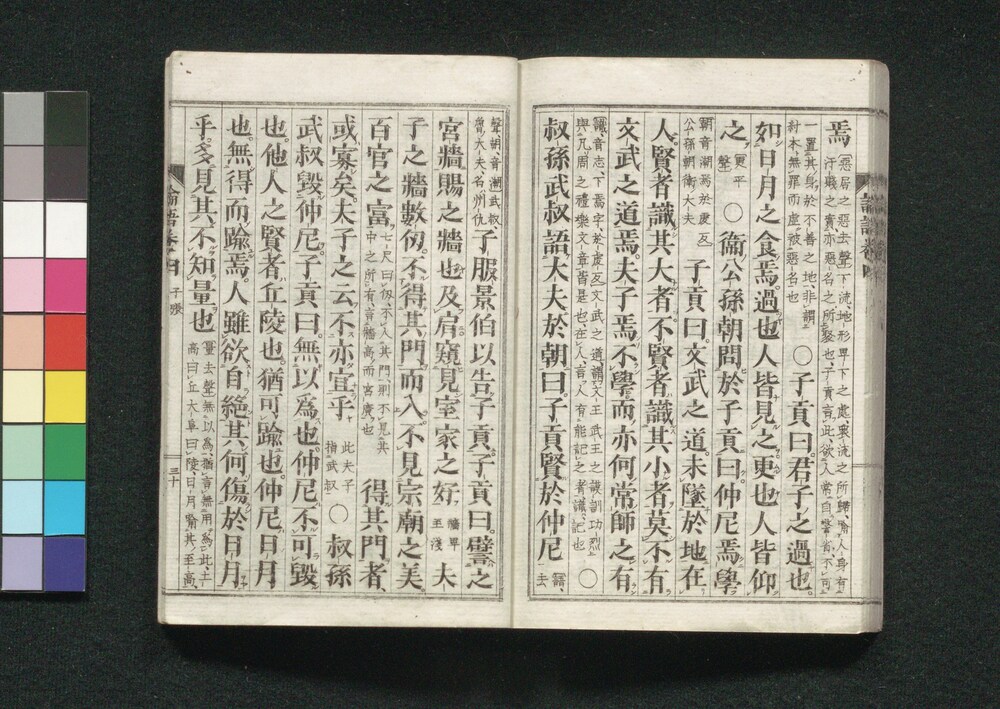 焉惡居之惡去聲下流地形卑下之處衆流之所歸喩人身有汙賤之實亦惡名之所聚也子貢言此欲人常自警省不可
一置其身於不善之地非謂紂本無罪而虛被惡名也〇子貢曰君子之過也
如日月之食焉過也人皆見之更也人皆仰
之更平聲〇衞公孫朝問於子貢曰仲尼焉學
朝音潮焉於虔反公孫朝衞大夫子貢曰文武之道未墜於地在
人賢者識其大者不賢者識其小者莫不有
文武之道焉夫子焉不學而亦何常師之有
識音志下焉字於虔反文武之道謂文王武王之謨訓功烈與凡周之禮樂文章皆是也在人言人有能記之者識記也〇
叔孫武叔語大夫於朝曰子貢賢於仲尼語去
聲朝音潮武叔魯大夫名州仇子服景伯以告子貢子貢曰譬之
宮牆賜之牆也及肩窺見室家之好牆卑室淺夫
子之牆數仞不得其門而入不見宗廟之美
百官之富七尺曰仞不入其門則不見其中之所有言牆高而宮廣也得其門者
或寡矣夫子之云不亦宜乎此夫子指武叔〇叔孫
武叔毀仲尼子貢曰無以爲也仲尼不可毀
也他人之賢者丘陵也猶可踰也仲尼日月
也無得而踰焉人雖欲自絶其何傷於日月
乎多見其不知量也量去聲無以爲猶言無用爲此土高曰丘大阜曰陵日月喩其至高
論語卷四
子張
三十